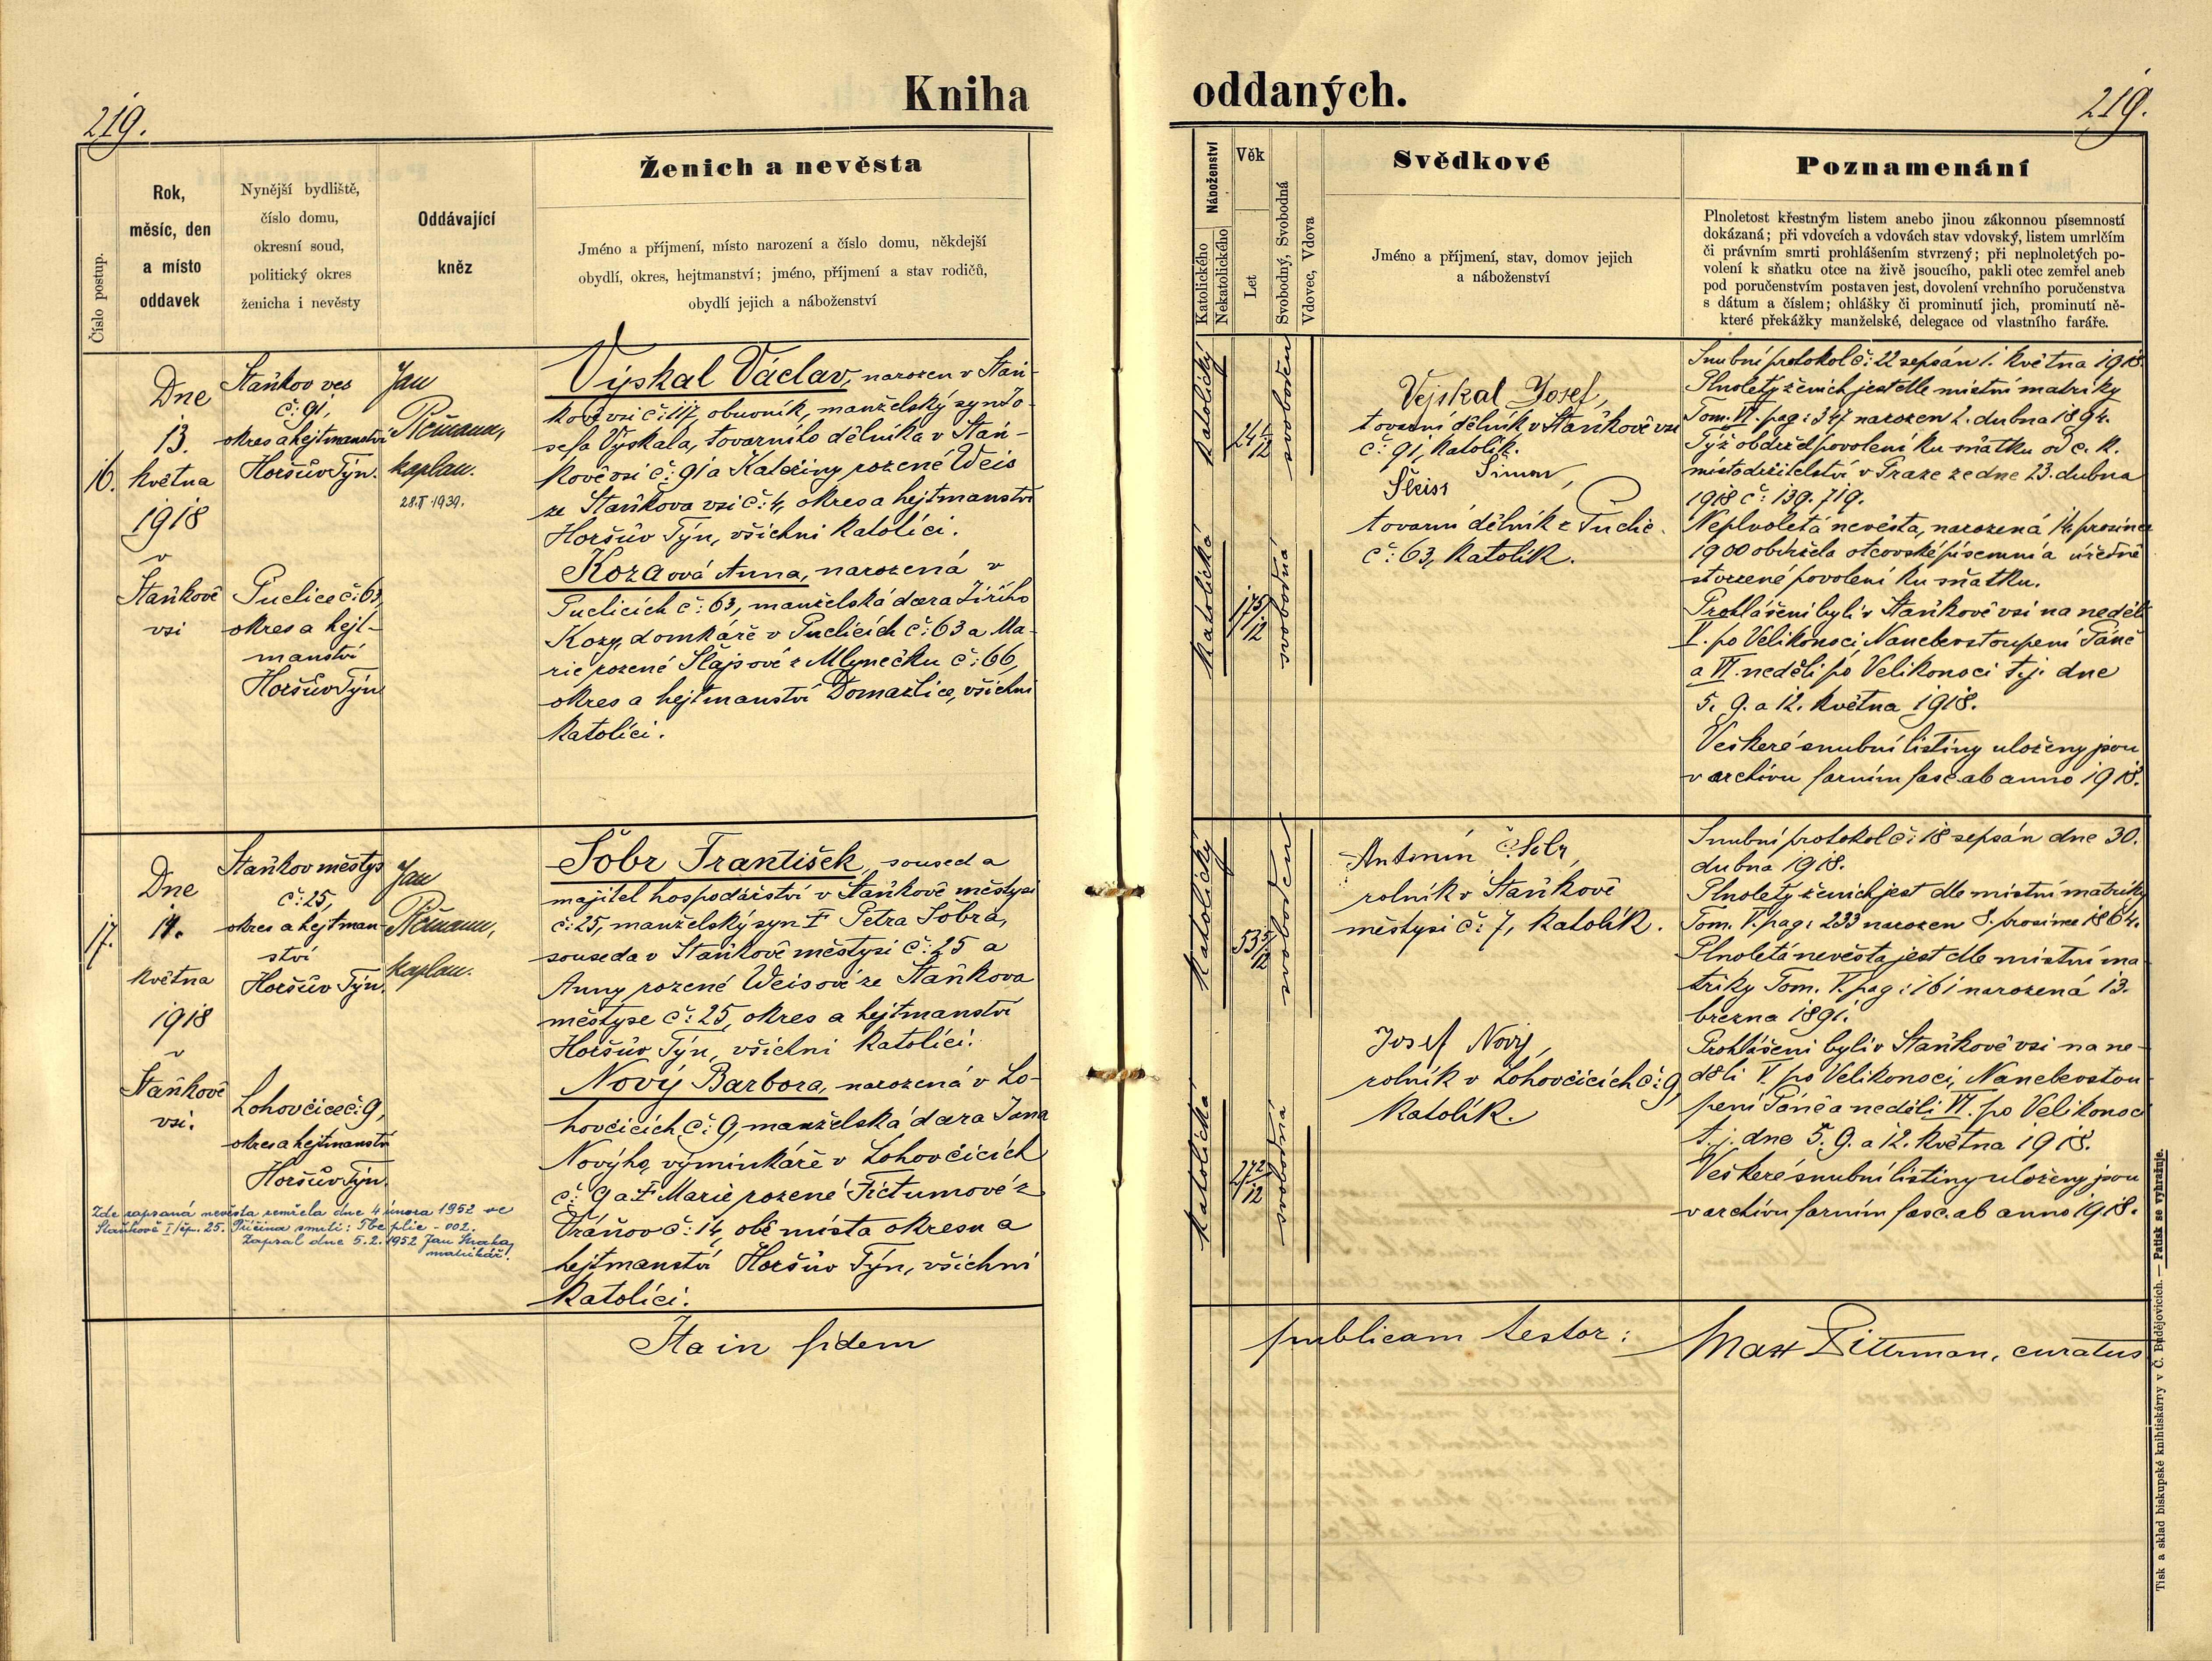 219.
Kniha
Číslo postup.
Rok,
měsíc, den
a místo
oddavek
Nynější bydliště,
číslo domu,
okresní soud,
politický okres
ženicha i nevěsty
Oddávající
kněz
Ženich a nevěsta
Jméno a příjmení, místo narození a číslo domu, někdejší
obydlí, okres, hejtmanství; jméno, příjmení a stav rodičů,
obydlí jejich a náboženství
16.
Dne
13.
května
1918
v
Staňkově
vsi
Staňkov ves
č: 91,
okres a hejtmanství
Horšův Týn.
Puclice č: 63,
okres a hejt-
manství
Horšův Týn
Jan
kaplan.
28.II 1939.
Výskal Václav, narozen v Staň-
kově vsi č: 117, obuvník, manželský syn Jo-
sefa Výskala, továrního dělníka v Staň-
kově vsi č: 91 a Kateřiny rozené Weis
ze Staňkova vsi č: 4, okres a hejtmanství
Horšův Týn, všichni katolíci.
Kozaová Anna, narozená v
Puclicích č: 63, manželská dcera Jiřího
Kozy, domkáře v Puclicích č: 63 a Ma-
rie rozené Šlajsové z Mlýnečku č: 66,
okres a hejtmanství Domažlice, všichni
katolíci.
17.
Dne
14.
května
1918
v
Staňkově
vsi.
Staňkov městys
č: 25,
okres a hejtman-
ství
Horšův Týn.
Lohovčice č: 9,
okres a hejtmanství
Horšův Týn.
Jan
kaplan.
Zde zapsaná nevěsta zemřela dne 4 února 1952 ve
Staňkově I/čp. 25. Příčina smrti: Tbc plic - 002.
Zapsal dne 5.2.1952 Jan
matrikář.
Šobr František, soused a
majitel hospodářství v Staňkově městysi
č: 25, manželský syn † Petra Šobra,
souseda v Staňkově městysi č: 25 a
Anny rozené Weisové ze Staňkova
městyse č: 25, okres a hejtmanství
Horšův Týn, všichni katolíci.
Nový Barbora, narozená v Lo-
hovčicích č: 9, manželská dcera Jana
Novýho, výminkáře v Lohovčicích
č: 9 a † Marie rozené Fictumové z
Vráňov č: 14, obě místa okresu a
hejtmanství Horšův Týn, všichni
katolíci.
Ita in fidem
oddaných.
219.
Náboženství
Katolického
Nekatolického
Věk
Let
Svobodný, Svobodná
Vdovec, Vdova
Svědkové
Jméno a příjmení, stav, domov jejich
a náboženství
Poznamenání
Plnoletost křestným listem anebo jinou zákonnou písemností
dokázaná; při vdovcích a vdovách stav vdovský, listem umrlčím
či právním smrti prohlášením stvrzený; při neplnoletých po-
volení k sňatku otce na živě jsoucího, pakli otec zemřel aneb
pod poručenstvím postaven jest, dovolení vrchního poručenstva
s dátum a číslem; ohlášky či prominutí jich, prominutí ně-
které překážky manželské, delegace od vlastního faráře.
katolický
24 1/12
svoboden
katolická
17 5/12
svobodná
Vejskal Josef,
tovarní dělník v Staňkově vsi
č: 91, katolík.
Šimon,
Šleiss
tovarní dělník z Puclic
č: 63, katolík.
Snubní protokol č: 22 sepsán 1. května 1918.
Plnoletý ženich jest dle místní matriky
Tom. VI. pag: 347 narozen 2. dubna 1894.
Týž obdržel povolení ku sňatku od c. k.
místodržitelství v Praze ze dne 23. dubna
1918 č: 139.719.
Neplnoletá nevěsta, narozená 14. prosince
1900 obdržela otcovské písemní a úředně
stvrzené povolení ku sňatku.
Prohlášeni byli v Staňkově vsi na neděli
V. po Velikonoci, Nanebevstoupení Páně
a VI. neděli po Velikonoci t.j. dne
5. 9. a 12. května 1918.
Veškeré snubní listiny uloženy jsou
v archivu farním fasc. ab anno 1918.
katolický
53 5/12
svoboden
katolická
27 2/12
svobodná
Antonín Šobr,
rolník v Staňkově
městysi č: 7, katolík.
Josef Nový,
rolník v Lohovčicích č: 9,
katolík.
Snubní protokol č: 18 sepsán dne 30.
dubna 1918.
Plnoletý ženich jest dle místní matriky
Tom. V. pag: 233 narozen 8. prosince 1864.
Plnoletá nevěsta jest dle místní ma-
triky Tom. V. pag: 161 narozená 13.
března 1891.
Prohlášeni byli v Staňkově vsi na ne-
děli V. po Velikonoci, Nanebevstou-
pení Páně a neděli VI. po Velikonoci
t.j. dne 5. 9. a 12. května 1918.
Veškeré snubní listiny uloženy jsou
v archivu farním fasc. ab anno 1918.
publicam testor:
Max Dittrman, curatus
Tisk a sklad biskupské knihtiskárny v Č. Budějovicích. — Patisk se vyhražuje.